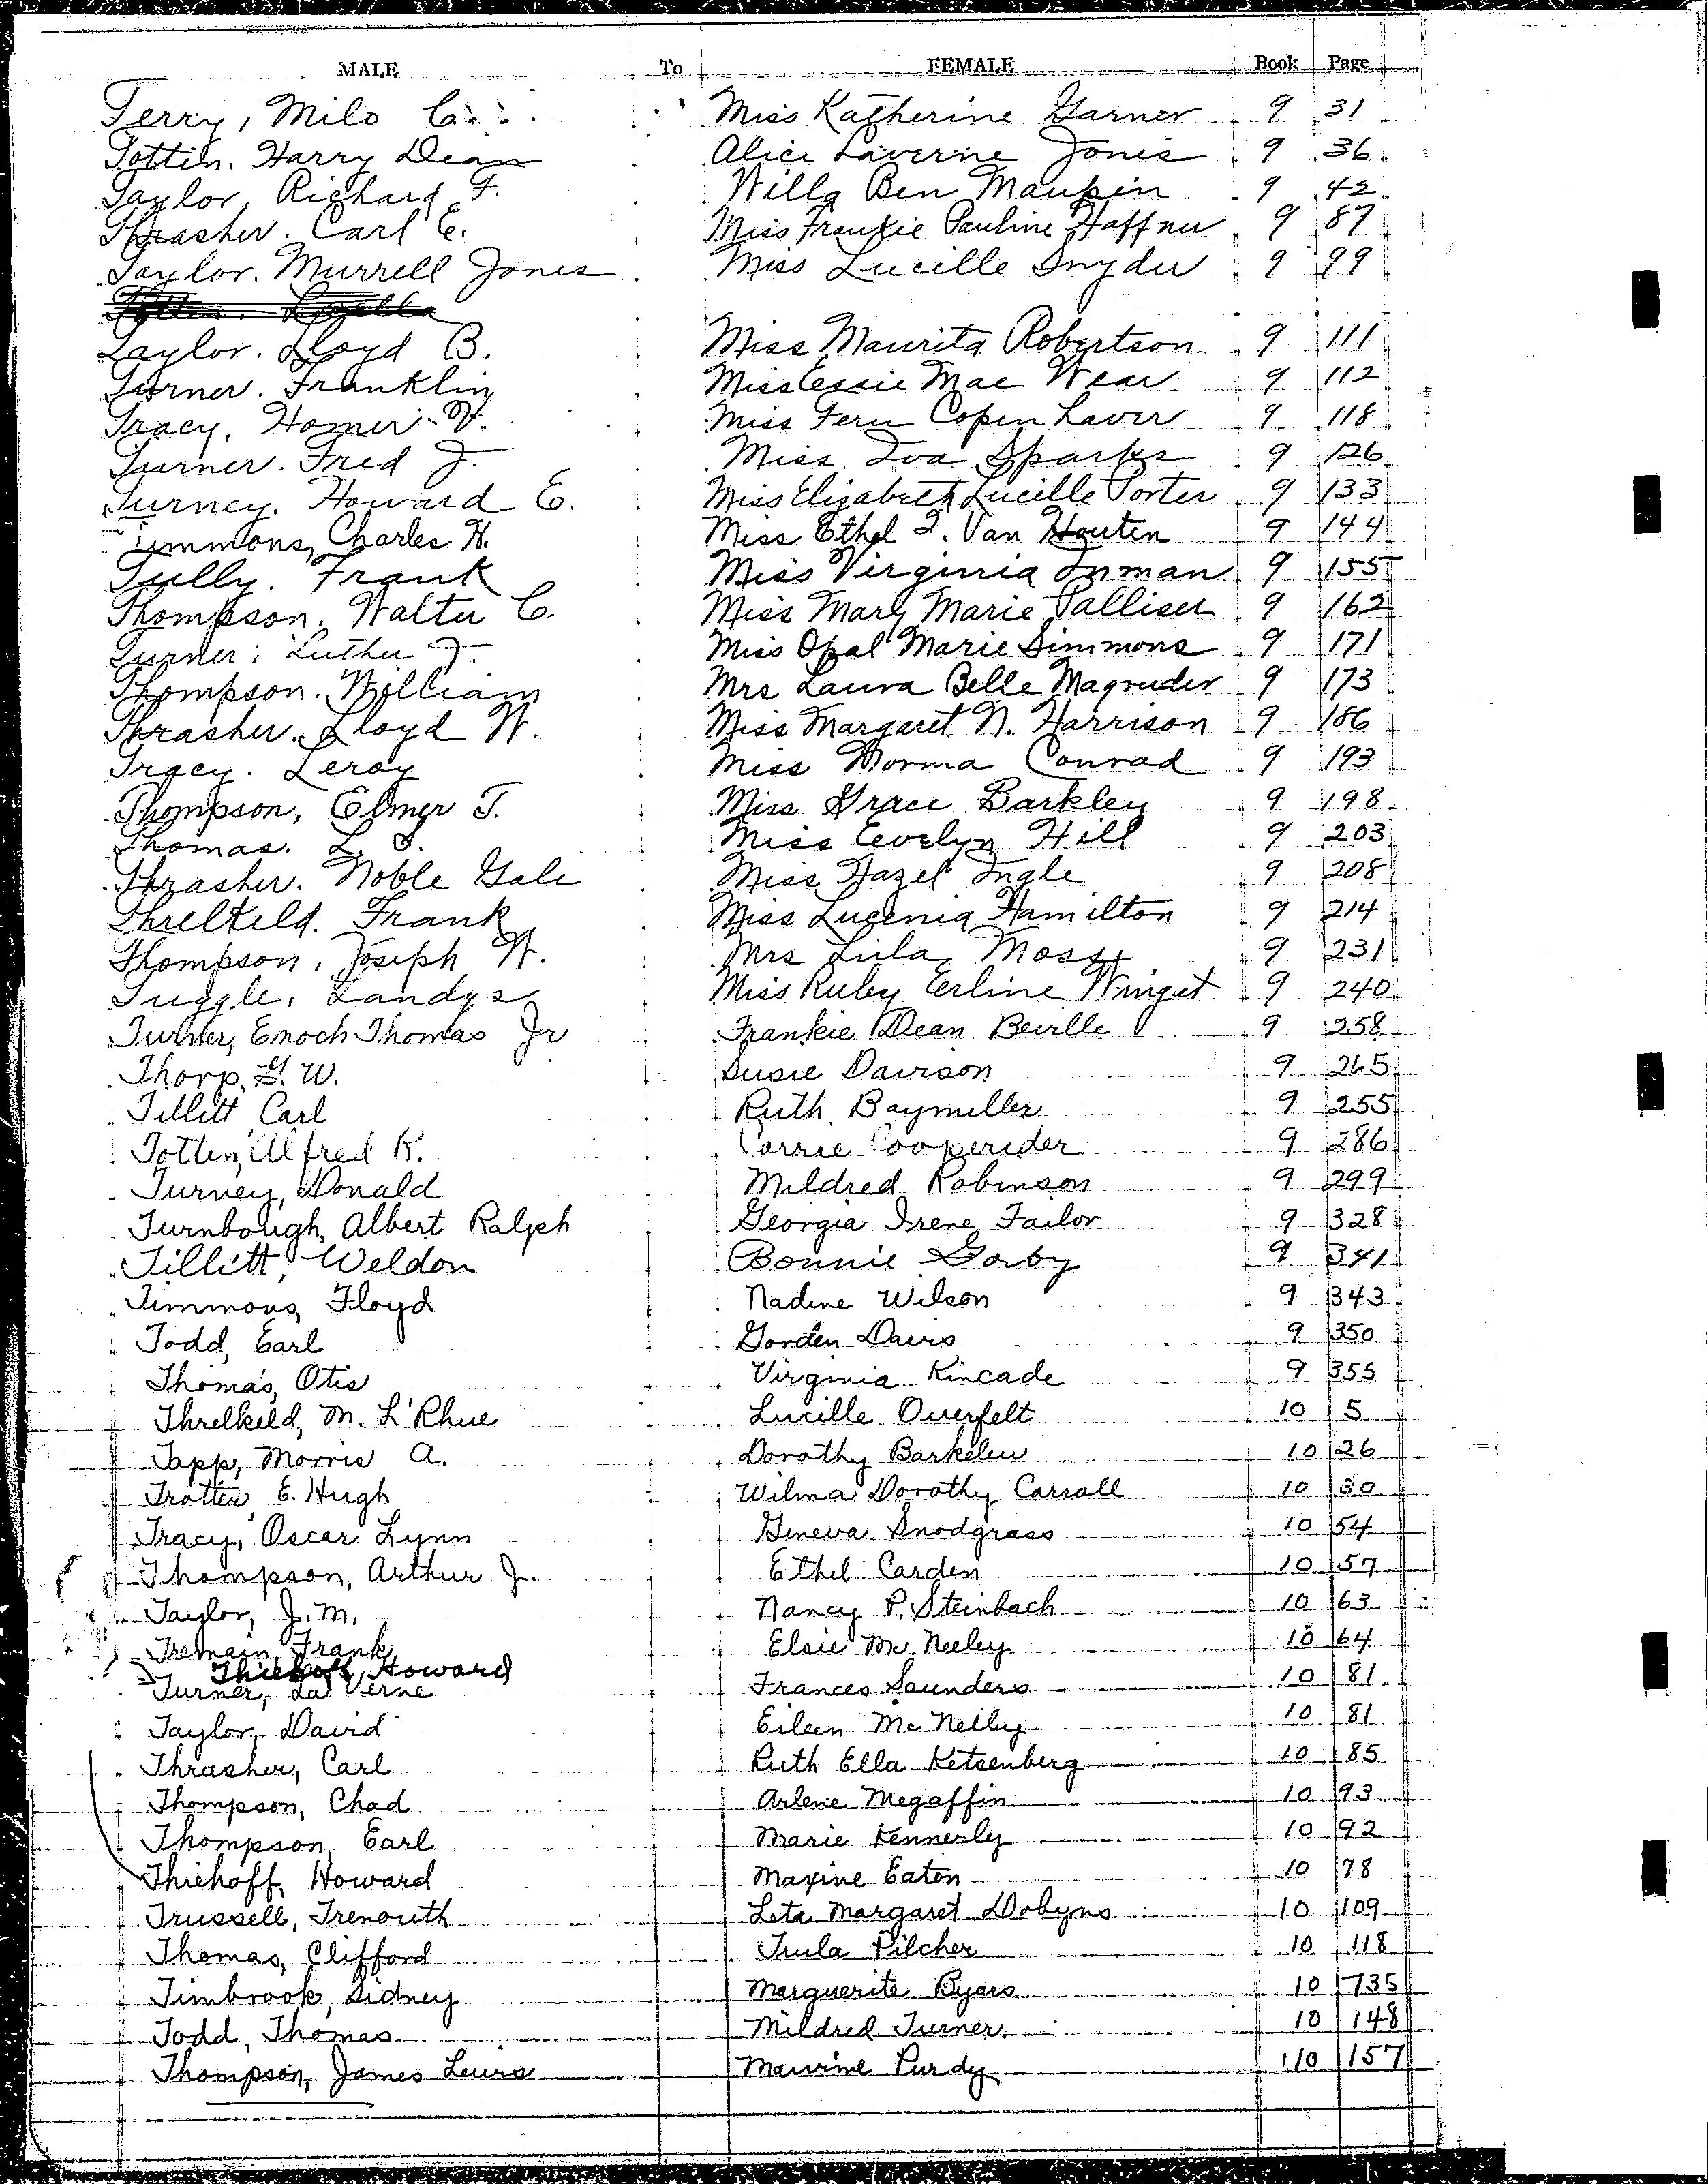 MALE To FEMALE Book Page
Terry, Milo C. Miss Katherine Garner 9 31
Tottin. Harry Dean Alice Laverne Jones 9 36
Taylor, Richard F. Willa Ben Maupin 9 42
Thrasher. Carl E. Miss Frankie Pauline Haffner 9 87
Taylor. Murrell Jones Miss Lucille Snyder 9 99
Luella
Taylor. Lloyd B. Miss Maurita Robertson 9 111
Turner. Franklin Miss Essie Mae Wear 9 112
Tracy, Homer V. Miss Fern Copenhaver 9 118
Turner. Fred J. Miss Iva Sparks 9 126
Turney. Howard E. Miss Elizabeth Lucille Porter 9 133
Timmons, Charles H. Miss Ethel I. Van Houten 9 144
Tully. Frank Miss Virginia Inman 9 155
Thompson, Walter C. Miss Mary Marie Palliser 9 162
Turner; Luther J. Miss Opal Marie Simmons 9 171
Thompson. William Mrs Laura Belle Magruder 9 173
Thrasher. Lloyd W. Miss Margaret N. Harrison 9 186
Tracy. Leroy Miss Norma Conrad 9 193
Thompson, Elmer T. Miss Grace Barkley 9 198
Thomas. L. S. Miss Evelyn Hill 9 203
Thrasher. Noble Gale Miss Hazel Ingle 9 208
Threlkeld. Frank Miss Lugenia Hamilton 9 214
Thompson, Joseph W. Mrs Lula Moss 9 231
Tuggle, Landys Miss Ruby Erline Winget 9 240
Turner, Enoch Thomas Jr Frankie Dean Beville 9 258
Thorp, G. W. Susie Davison 9 265
Tillitt Carl Ruth Baymiller 9 255
Totten, Alfred K. Carrie Cooperider 9 286
Turney, Donald Mildred Robinson 9 299
Turnbough, Albert Ralph Georgia Irene Failor 9 328
Tillitt, Weldon Bonnie Gorby 9 341
Timmons, Floyd Nadine Wilson 9 343
Todd, Earl Gorden Davis 9 350
Thomas, Otis Virginia Kincade 9 355
Threlkeld, M. L'Rhue Lucille Overfelt 10 5
Tapp, Morris A. Dorothy Barkelew 10 26
Trotter E. Hugh Wilma Dorothy Carroll 10 30
Tracy, Oscar Lynn Geneva Snodgrass 10 54
Thompson, Arthur J. Ethel Carden 10 57
Taylor, J. M. Nancy P. Steinbach 10 63
Tremain, Frank Elsie McNeeley 10 64
Thiehoff, Howard
Turner, La Verne Frances Saunders 10 81
Taylor, David Eileen McNelly 10 81
Thrasher, Carl Ruth Ella Ketsenberg 10 85
Thompson, Chad Arlene Megaffin 10 93
Thompson, Earl Marie Kennerly 10 92
Thiehoff, Howard Maxine Eaton 10 78
Trussell, Trenouth Leta Margaret Dobyns 10 109
Thomas, Clifford Tula Pilcher 10 118
Timbrook, Sidney Marguerite Byars 10 735
Todd, Thomas Mildred Turner 10 148
Thompson, James Lewis Maurine Purdy 10 157